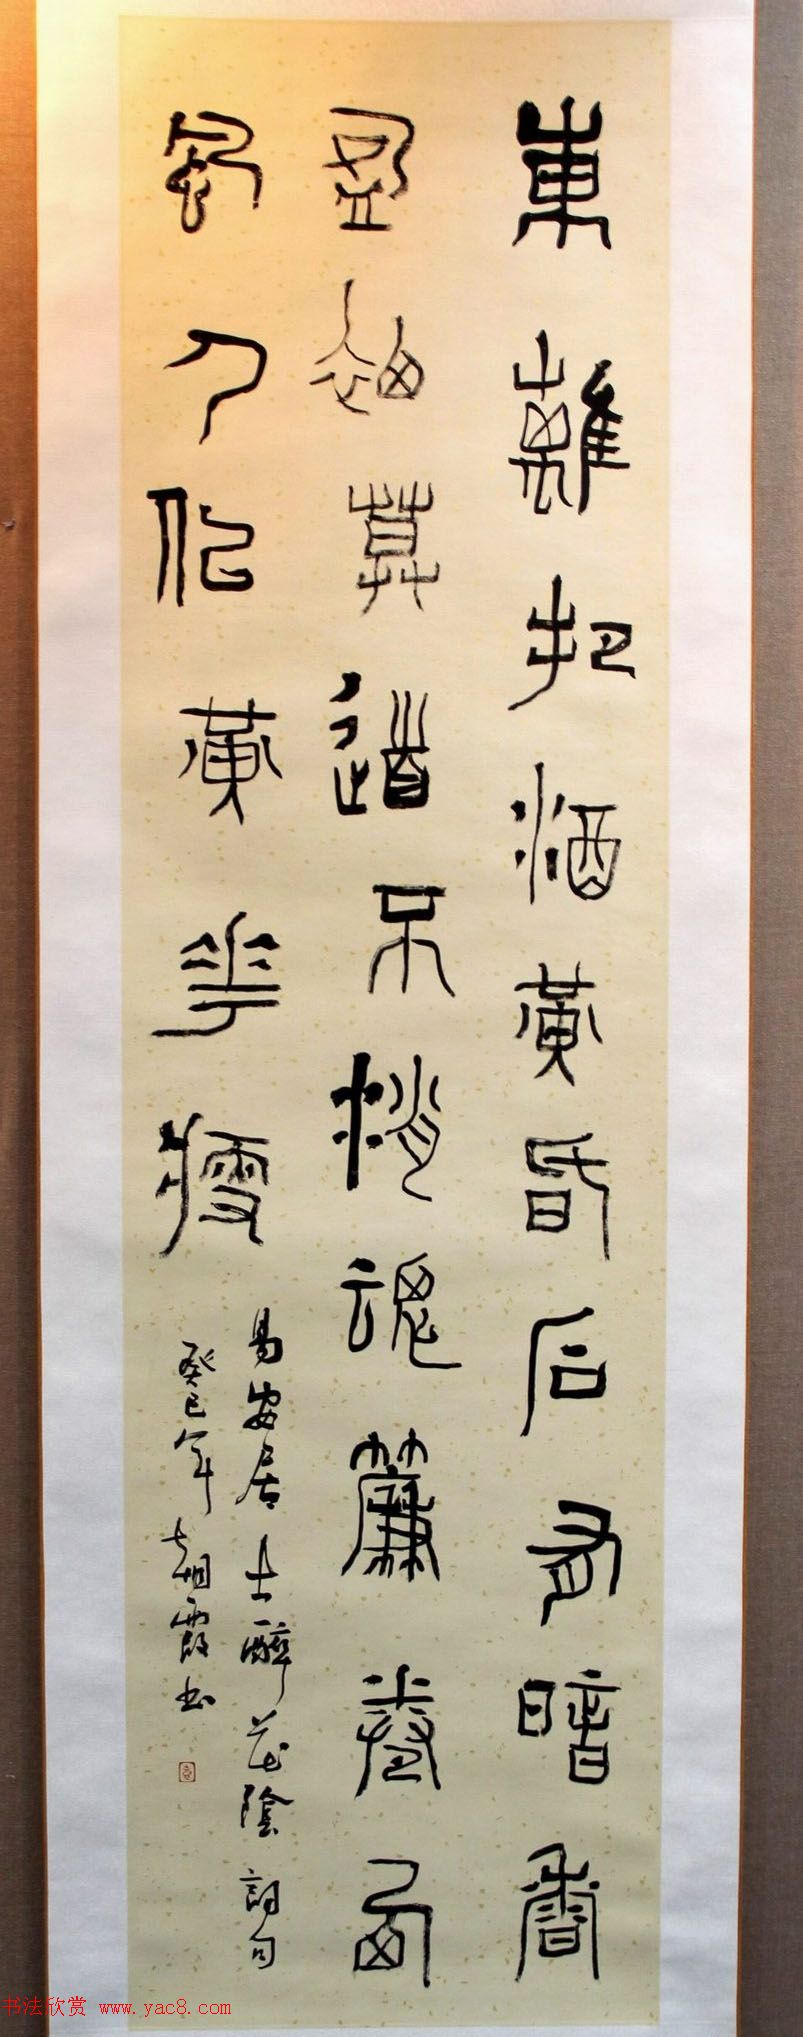 東離把酒黃昏后有暗香
盈袖莫道不消魂簾卷西
風人似黃花瘦
易安居士醉花陰詞句
癸巳年朝霞书
书法欣赏 www.yac8.com